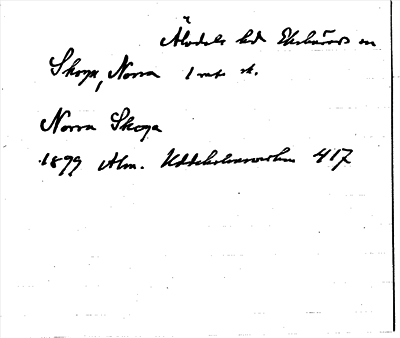 Älvdals hd Ekshärads sn
Skoga, Norra 1 mt sk.
Norra Skoga
1899 Alm. Uddeholmsverken 417